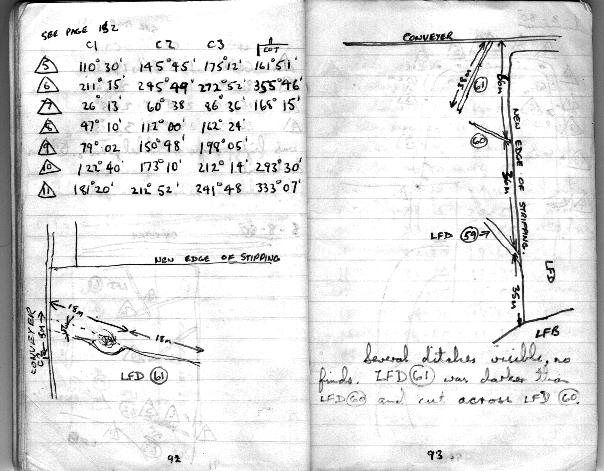 SEE PAGE 182
C1 C2 C3 LCOT
5 110° 30' 145° 45' 175° 12' 161° 51'
6 211° 15' 245° 49' 272° 52' 355° 46'
7 26° 13' 60° 38 86° 36 165° 15'
8 97° 10' 112° 00' 162° 24'
9 79° 02 150° 48' 198° 05'
10 122° 40' 173° 10' 212° 14' 293° 30'
11 181° 20' 212° 52' 241° 48 333° 07'
NEW EDGE OF STIPPING
CONVEYER
5M
15M
18M
LFD 61
92
CONVEYER
58M
61
66M
60
36M
NEW EDGE OF STRIPPING.
LFD 59
35M
LFD
LFB
Several ditches visible, no
finds. LFD 61 was darker than
LFD 60 and cut across LFD 60.
93.